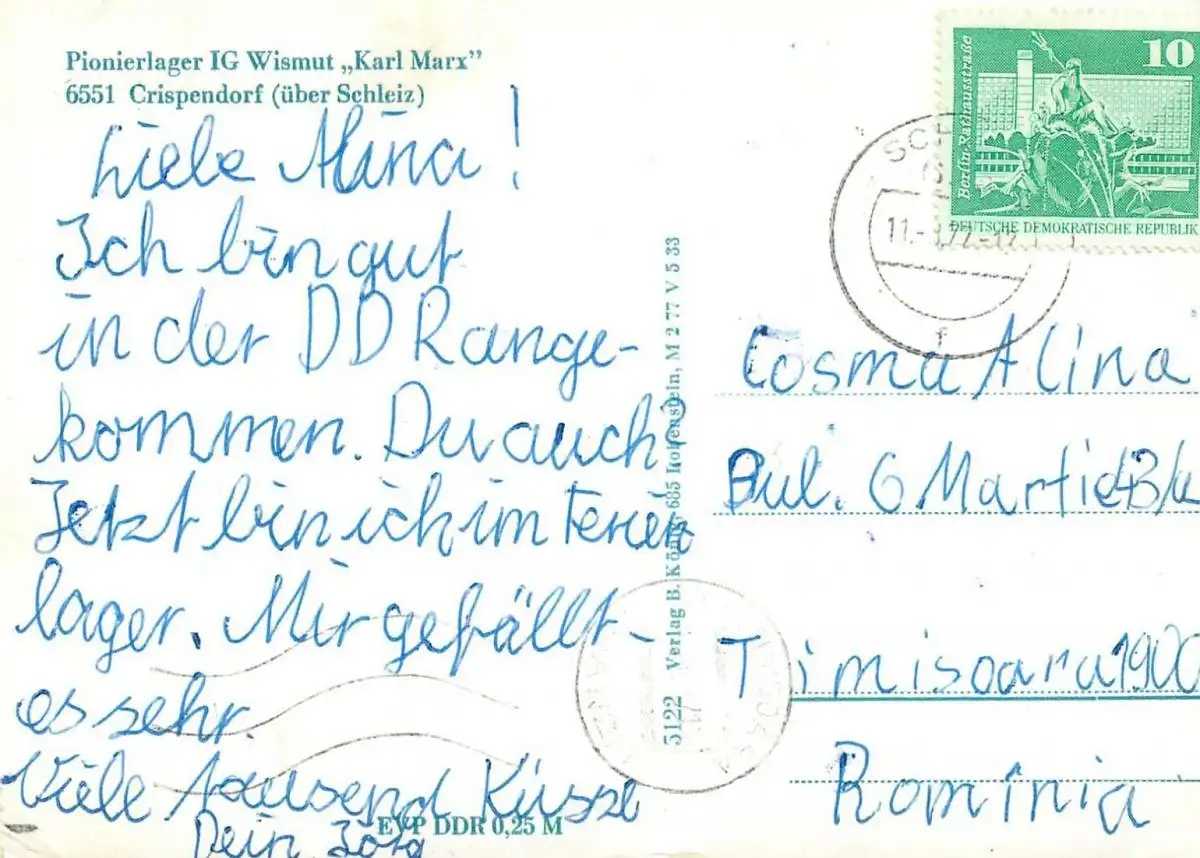 Pionierlager IG Wismut „Karl Marx”
6551 Crispendorf (über Schleiz)
Liebe Alina!
Ich bin gut
in der DDR ange-
kommen. Du auch?
Jetzt bin ich im Ferien
lager. Mir gefällt
es sehr.
Viele tausend Küsse
Dein Jörg
EVP DDR 0,25 M
5122 Verlag B. König, 685 Lobenstein, M 2 77 V 5 33
10
Berlin-Rathausstraße
DEUTSCHE DEMOKRATISCHE REPUBLIK
Cosma Alina
Bul. 6 Martie
Timisoara 1900
Rominia